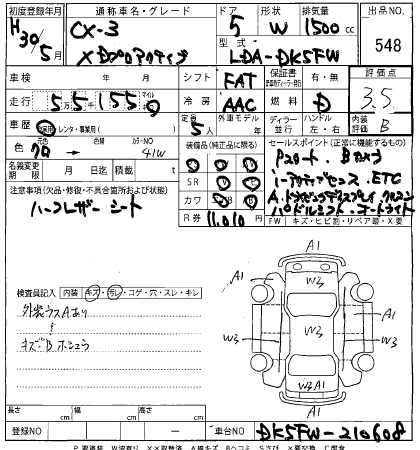 初度登録年月 通称車名・グレード ドア 形状 排気量 出品NO
H30/5月 CX-3 XDプロアクティブ 5 W 1500cc 548
型式 LDA-DK5FW
車検 年 月 シフト FAT 保証書 有・無 評価点
走行 55155 冷房 AAC 燃料 D 3.5
車歴 自家用 レンタ・事業用( ) 定員 5人 外車モデル 年 ディーラー 並行 ハンドル 左・右 内装評価 B
色 クロ カラーNO 41W 装備品(純正品に限る) セールスポイント(正常に機能するもの)
名義変更期限 月 日迄 積載 t SR
注意事項(欠品・修理・不具合箇所および状態) カワ
ハーフレザーシート R券 11,010円
Pスタート、Bカメラ
i-アクティブセンス、ETC
A.ドライビングディスプレイ、クルコン
パドルシフト、オートライト
FW キズ・ヒビ割・リペア跡・X要
検査員記入 内装 キズ・汚レ・コゲ・穴・スレ・キレ
外装ウスAあり
キズ・Bホシュウ
A1
A1 W3 A1
W3 W3 W3
W3A1
長さ cm 幅 cm 高さ cm
登録NO 車台NO DK5FW-210608